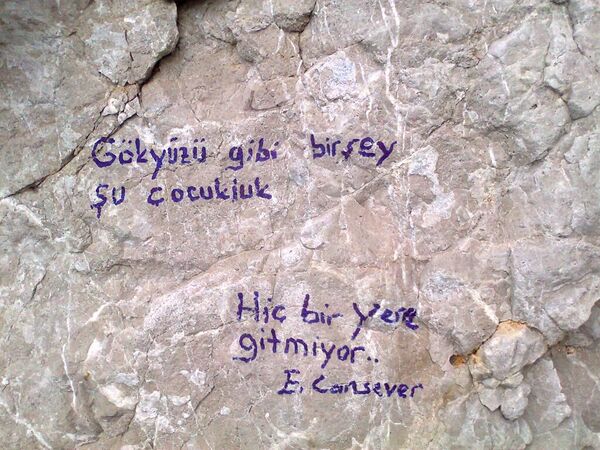 Gökyüzü gibi birşey
şu çocukluk
Hiç bir yere
gitmiyor..
E. Cansever